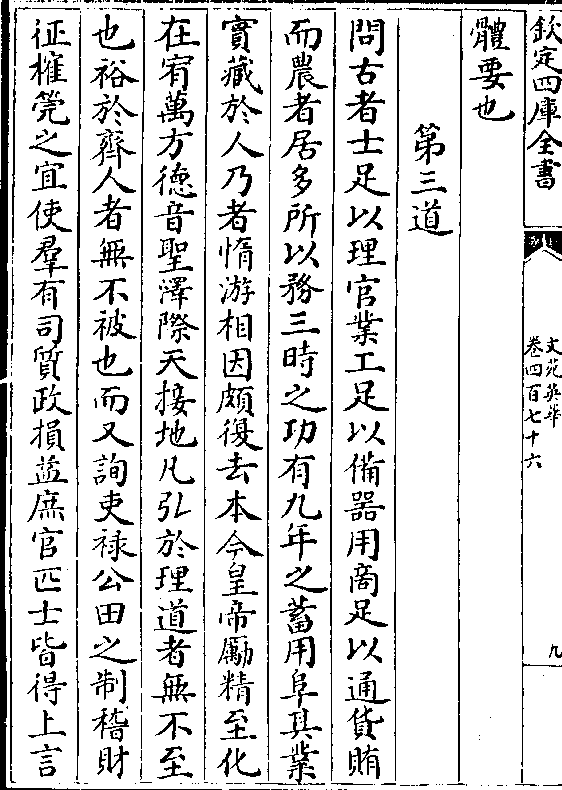 欽定四庫全書
文苑英華
卷四百七十六
九
體要也
第三道
問古者士足以理官業工足以備器用商足以通貨賄
而農者居多所以務三時之功有九年之蓄用阜其業
實藏於人乃者惰游相因頗復去本今皇帝勵精至化
在宥萬方德音聖澤際天接地凡弘於理道者無不至
也裕於齊人者無不被也而又詢吏禄公田之制稽財
征榷筦之宜使羣有司質政損益庶官匹士皆得上言